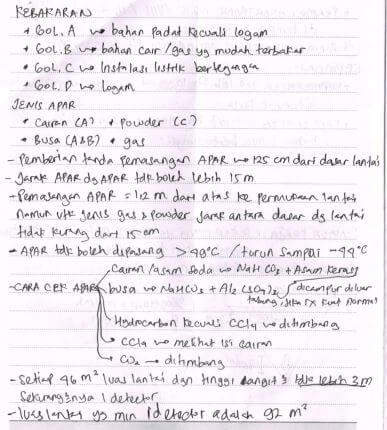 KEBAKARAN
• GOL. A → bahan padat kecuali logam
• GOL. B → bahan cair/gas yg mudah terbakar
• GOL. C → Instalasi listrik bertegangan
• GOL. D → logam
JENIS APAR
• Cairan (A) • Powder (C)
• Busa (A&B) • gas
- Pemberian tanda pemasangan APAR → 125 cm dari dasar lantai
- Jarak APAR dg APAR tdk boleh lebih 15 m
- Pemasangan APAR = 1,2 m dari atas ke permukaan lantai
namun utk jenis gas & powder jarak antara dasar dg lantai
tidak kurang dari 15 cm
- APAR tdk boleh dipasang > 49°C / turun sampai -44°C
Cairan/asam soda → NaHCO3 + Asam keras
- CARA CEK APAR busa → NaHCO3 + Al2(SO4)3, dicampur diluar
tabung, jika kuat normal
Hydrocarbon kecuali CCl4 → ditimbang
CCl4 → melihat isi cairan
CO2 → ditimbang
- Setiap 46 m² luas lantai dgn tinggi langit² tdk lebih 3m
Sekurang²nya 1 detector
- luas lantai yg min 1 detector adalah 92 m²